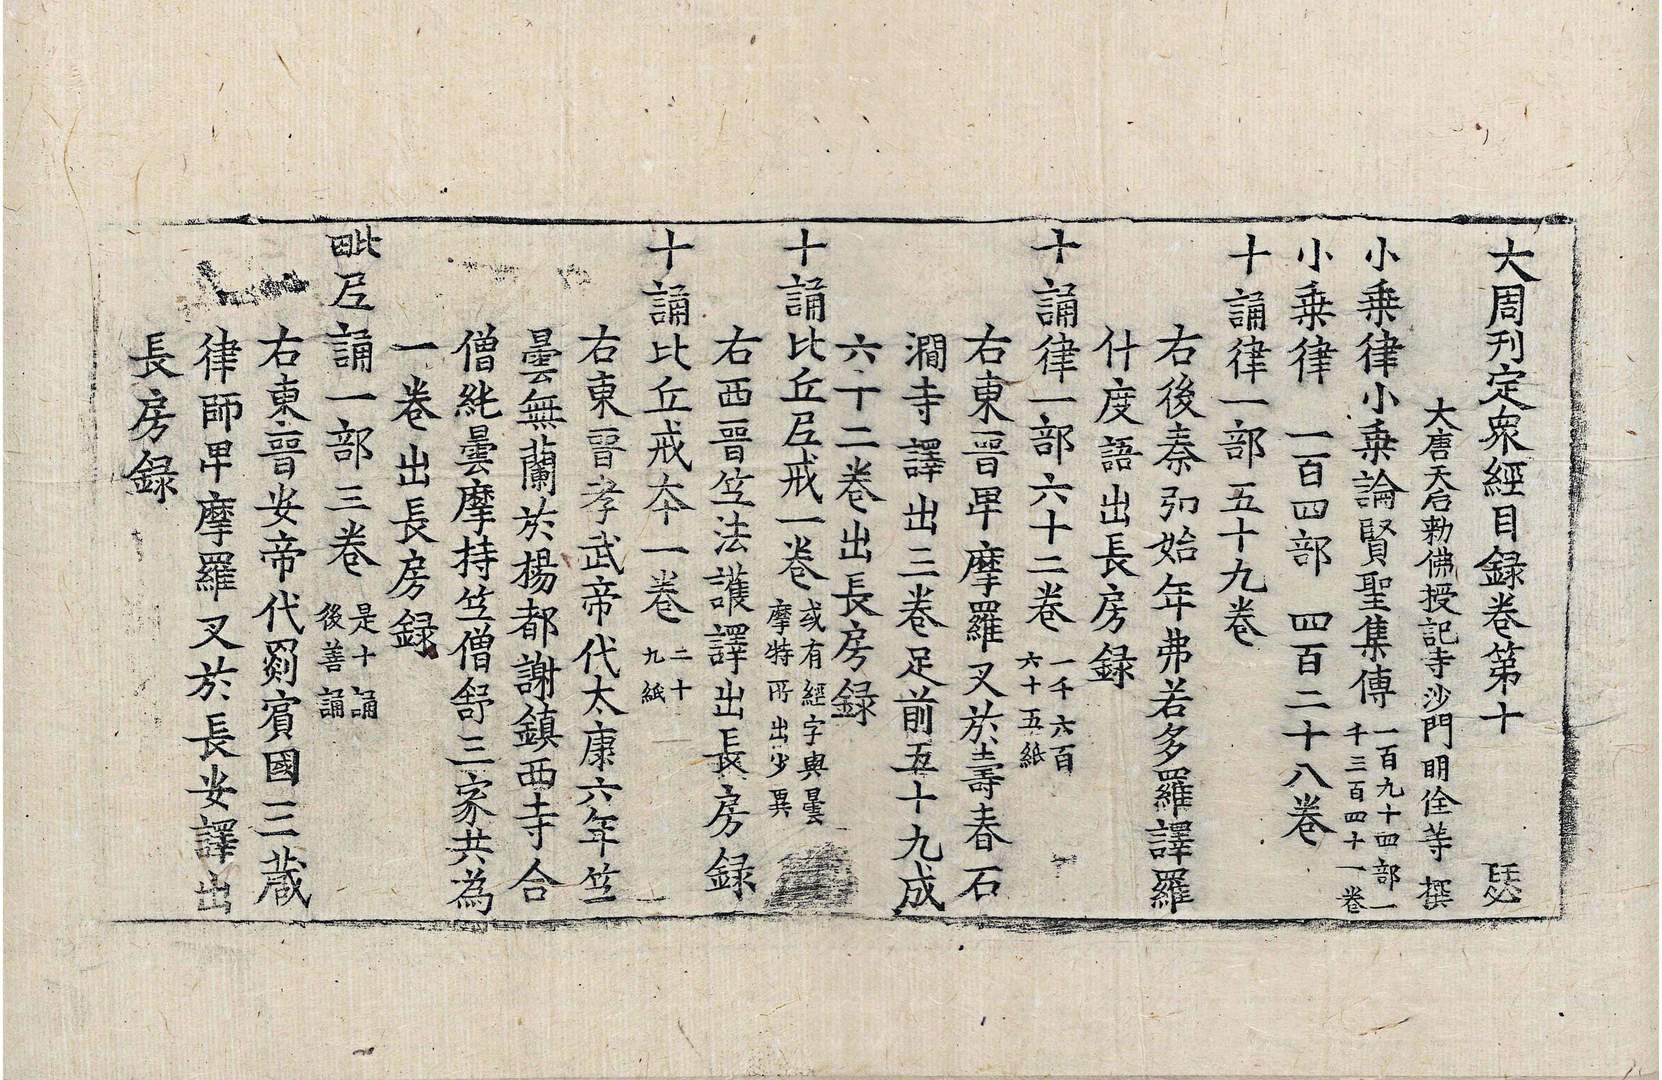 大周刊定衆經目録卷第十　瑟
大唐天后勅佛授記寺沙門明佺等撰
小乘律小乘論賢聖集傳一百九十四部一千三百四十一卷
小乘律　一百四部　四百二十八卷
十誦律一部五十九卷
右後秦弘始年弗若多羅譯羅
什度語出長房録
十誦律一部六十二卷一千六百六十五紙
右東晉卑摩羅叉於壽春石
澗寺譯出三卷足前五十九成
六十二卷出長房録
十誦比丘尼戒一卷或有經字與曇摩特所出少異
右西晉竺法護譯出長房録
十誦比丘戒夲一卷二十九紙
右東晉孝武帝代太康六年竺
曇無蘭於楊都謝鎮西寺合
僧純曇摩持竺僧舒三家共為
一卷出長房録
毗尼誦一部三卷是十誦後善誦
右東晉安帝代罽賓國三蔵
律師卑摩羅叉於長安譯出
長房録